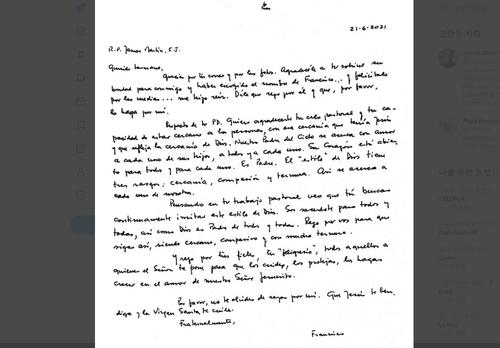 21-6-2021
R.P. James Martin, S.J.
Querido hermano,
Gracias por tu correo y por las fotos. Agradécele a tu sobrino su
bondad para conmigo y haber escogido el nombre de Francisco... y felicitalo
por las medias... me hizo reir. Dile que rezo por él y que, por favor,
lo haga por mi.
Respecto de tu P.D. Quiero agradecerte tu celo pastoral y tu ca-
pacidad de estar cercano a las personas, con esa cercania que tenia Jesús
y que refleja la cercania de Dios. Nuestro Padre del Cielo se acerca con amor
a cada uno de sus hijos, a todos y a cada uno. Su corazón está abier-
to para todos y para cada uno. Es Padre. El "estilo" de Dios tiene
tres rasgos: cercania, compasión y ternura. Asi se acerca a
cada uno de nosotros.
Pensando en tu trabajo pastoral veo que tú buscas
continuamente imitar este estilo de Dios. Sos sacerdote para todos y
todas, asi como Dios es Padre de todos y todas. Rezo por vos para que
sigas asi, siendo cercano, compasivo y con mucha ternura.
Y rezo por tus fieles, tu "feligresia", todos aquellos a
quienes el Señor te pone para que los cuides, los protejas, los hagas
crecer en el amor de nuestro Señor Jesucristo.
Por favor, no te olvides de rezar por mi. Que Jesús te ben-
diga y la Virgen Santa te cuide.
Fraternalmente,
Francisco